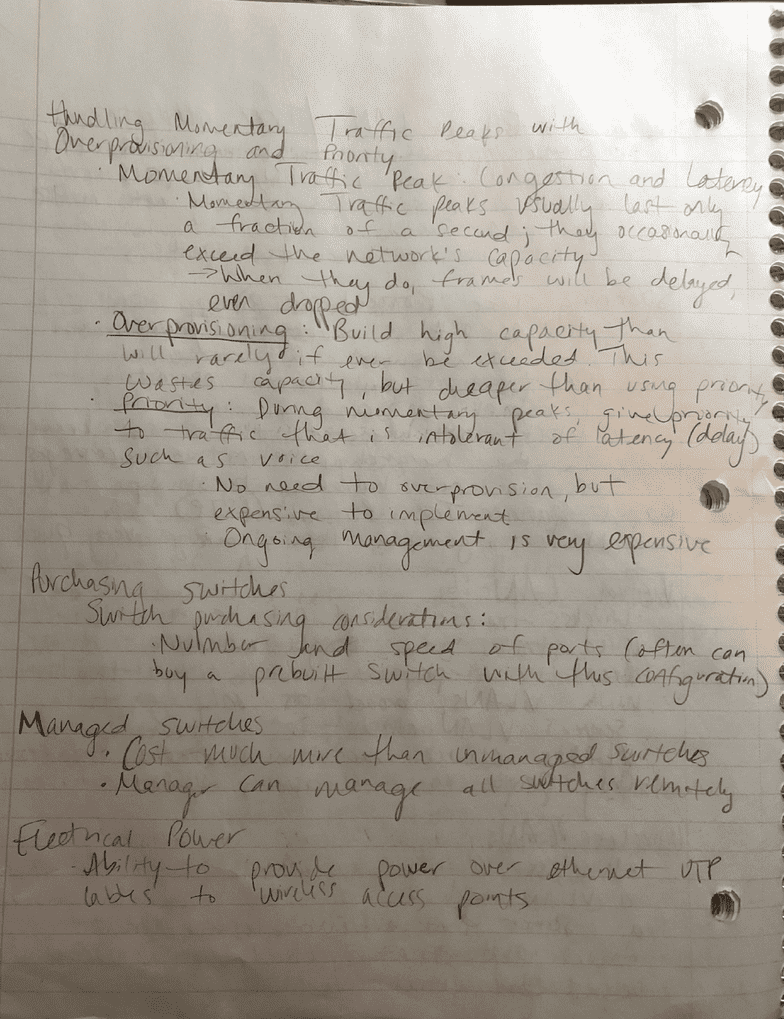 Handling Momentary Traffic Peaks with
Overprovisioning and Priority
· Momentary Traffic Peak: Congestion and Latency
· Momentary Traffic peaks usually last only
a fraction of a second; they occasionally
exceed the network's capacity
→When they do, frames will be delayed,
even dropped
· Overprovisioning: "Build high capacity than
will rarely if ever be exceeded. This
wastes capacity, but cheaper than using priority
· Priority: During momentary peaks, give priority
to traffic that is intolerant of latency (delay)
such as voice
· No need to overprovision, but
expensive to implement
· Ongoing management is very expensive
Purchasing switches
Switch purchasing considerations:
· Number and speed of ports (often can
buy a prebuilt switch with this configuration)
Managed switches
· Cost much more than unmanaged switches
· Manager can manage all switches remotely
Electrical Power
· Ability to provide power over ethernet UTP
cables to wireless access points